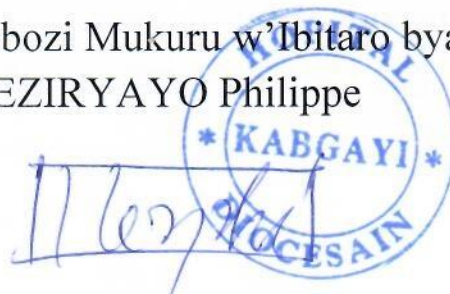 bozi Mukuru w'Ibitaro bya
EZIRYAYO Philippe
HOPITAL
* KABGAYI *
DIOCESAIN